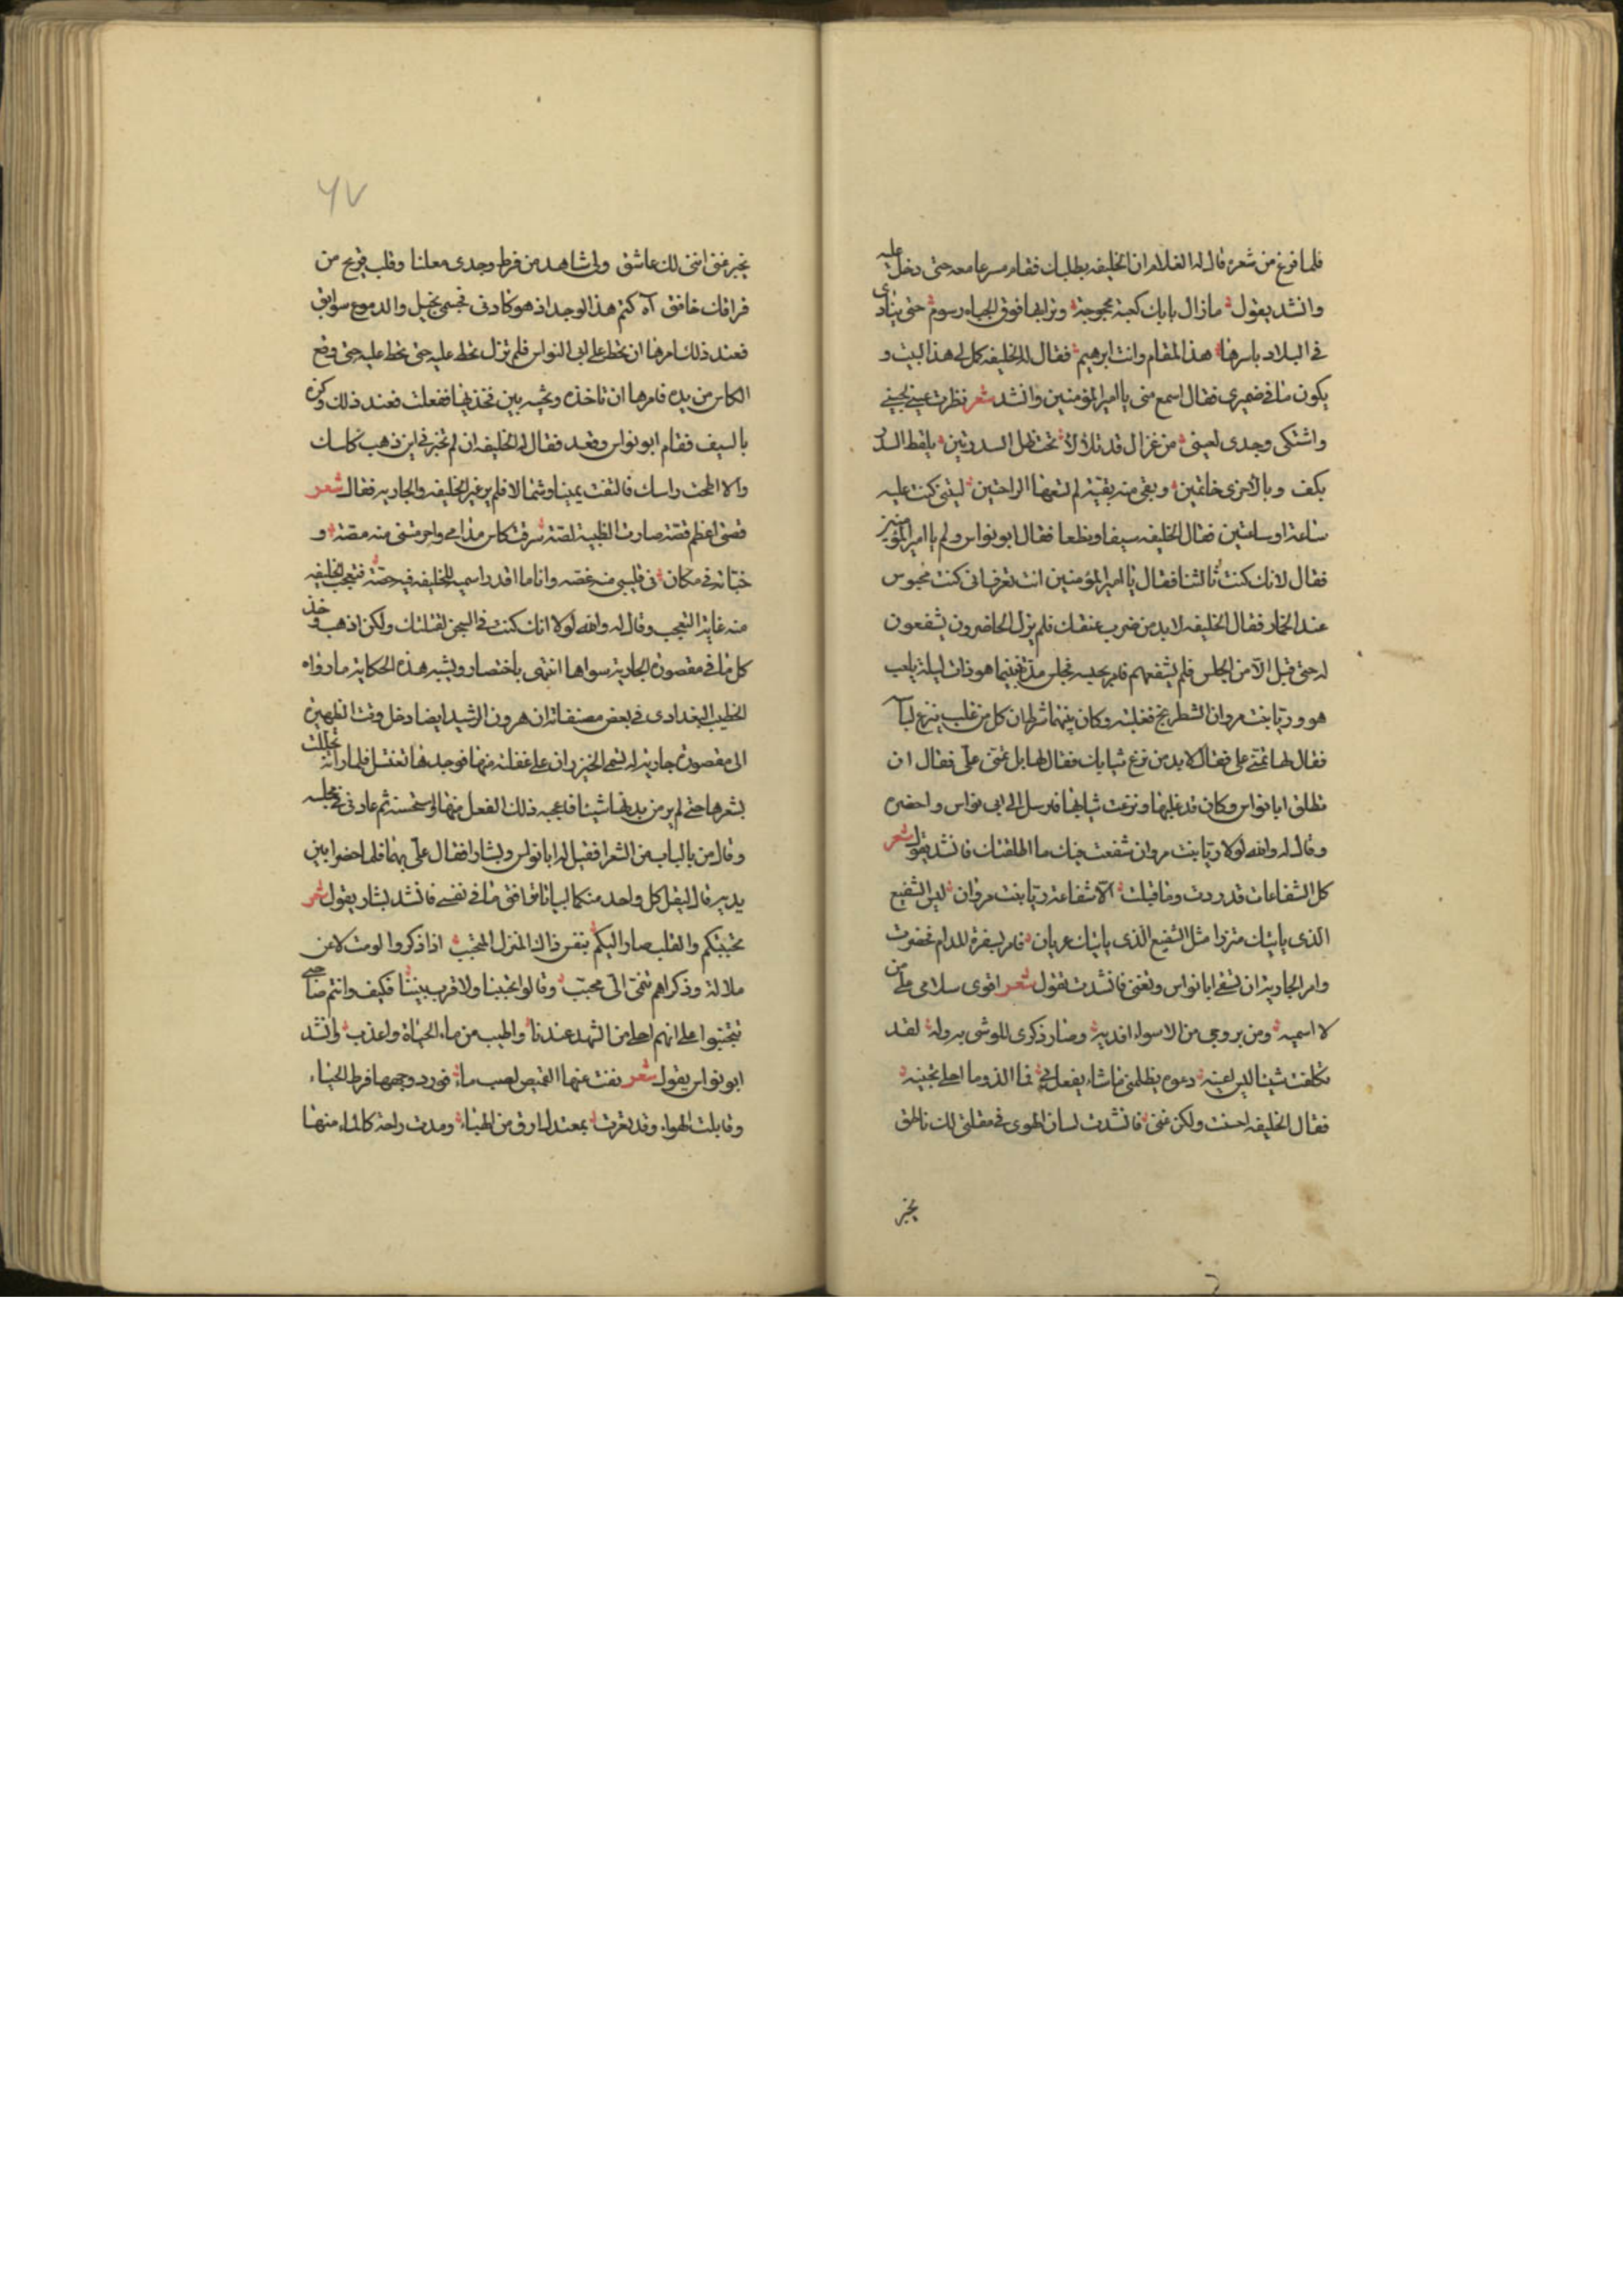 فلما فرغ من شعره قال له الغلام ان الخليفه يطلبك فقام مسرعا معه حتى دخل عليه
وانشد يقول مازال بابك كعبة محجوجة وترابها فوق الجباه رسوم حتى ينادى
فى البلاد باسرها هذا المقام وانت ابرهيم فقال له الخليفه كمل لى هذا البيت و
يكون ما فى ضميرى فقال اسمع منى يا امير المؤمنين وانشد شعر نظرت عينى لحينى
واشتكى وجدى لعينى من غزال قد تلالا تحت ظل السدرتين يلقط الدر
بكف وبالاخرى خاتمين وبقى منه بقية لم تسعها الراحتين ليتنى كنت عليه
ساعة او ساعتين فقال الخليفه سيفا ونطعا فقال ابو نواس ولم يا امير المؤمنين
فقال لانك كنت ثالثنا فقال يا امير المؤمنين انت تعرف انى كنت محبوس
عند الخمار فقال الخليفه لا بد من ضرب عنقك فلم يزل الحاضرون يشفعون
له حتى قبل الآمن الجلس فلم يشفعهم فامر بحبسه فجلس مدة فبينما هو ذات ليلة يلعب
هو وريا بنت مروان الشطرنج فغلبته وكان بينهما شرط ان كل من غلب ينزع
فقال لها تمنى على فقال لا بد من نزع ثيابك فقال لها بل تمنى على فقال ان
تطلق ابا نواس وكان قد غلبها ونزعت ثيابها فارسل الى ابى نواس واحضره
وقال له والله لولا ريا بنت مروان شفعت فيك ما اطلقتك فانشد يقول شعر
كل الشفاعات قد ردت وما قبلت الا شفاعة ريا بنت مروان ليس الشفيع
الذى ياتيك متزرا مثل الشفيع الذى ياتيك عريان فامر بسفرة المدام فحضرت
وامر الجارية ان تسقى ابا نواس وتغنى فانشدت تقول شعر اقوى سلامى على من
لا اسميه ومن بروحى من الاسواء افديه وصار ذكرى للوشى به وله لقد
تكلفت شيئا ليس يعنيه دعوه يظلمنى ما شاء يفعل بى فما الذ وما احلى تجنيه
فقال الخليفه احسنت ولكن غنى فانشدت لسان الهوى فى مقلتى لك ناطق
يخبر
٦٧
يخبر عنى اننى لك عاشق ولى شاهد من فرط وجدى معلنا وقلب قريح من
فراقك خافق آه كتم هذا الوجد اذ هو كادنى فجسمى نحيل والدموع سوابق
فعند ذلك امرها ان تحط على ابى النواس فلم تزل تحط عليه حتى تحط عليه حتى وضع
الكاس من يده فامرها ان تاخذه وتخبيه بين فخذيها ففعلت فعند ذلك وكزه
بالسيف فقام ابو نواس وقعد فقال له الخليفه ان لم تخبرنى اين ذهب كاسك
والا اطحت راسك فالتفت يمينا وشمالا فلم ير غير الخليفه والجاريه فقال شعر
قصتى اعظم قصة صارت الظبية لصة سرقت كاس مدامى واحرمتنى منه مصة و
خباته فى مكان فى قلبى منه غصه وانا ما اقدر اسميه للخليفه فيه حصة فتعجب الخليفه
منه غاية التعجب وقال له والله لولا انك كنت فى السجن لقتلتك ولكن اذهب وخذ
كل ما فى مقصورة الجارية سواها انتهى باختصار ويشبه هذه الحكاية ما رواه
الخطيب البغدادى فى بعض مصنفاته ان هرون الرشيد ايضا دخل وقت الظهيرة
الى مقصورة جارية له تسمى الخيزران على غفلة منها فوجدها تغتسل فلما راته تجللت
بشعرها حتى لم ير من بدنها شيئا فاعجبه ذلك الفعل منها واستحسنه ثم عاد فى مجلسه
وقال من بالباب من الشعرا فقيل له ابا نواس وبشارا فقال على بهما فلما احضرا بين
يديه قال ليقل كل واحد منكما ابياتا توافق ما فى نفسى فانشد بشار يقول شعر
تحببتكم والقلب صار اليكم بنفس ذاك المنزل المحجب اذا ذكروا لومت لا عن
ملالة وذكراهم شئ الى محبب وقالوا تجنبنا ولا قرب بيننا فكيف وانتم
تجنبتوا على انهم احلى من الشهد عندنا واطيب من ماء الحياة واعذب وانشد
ابو نواس يقول شعر نضت عنها القميص لصب ماء فورد وجهها فرط الحياء
وقابلت الهواء وقد تعرت بمعتدل ارق من الهواء ومدت راحة كالماء منها